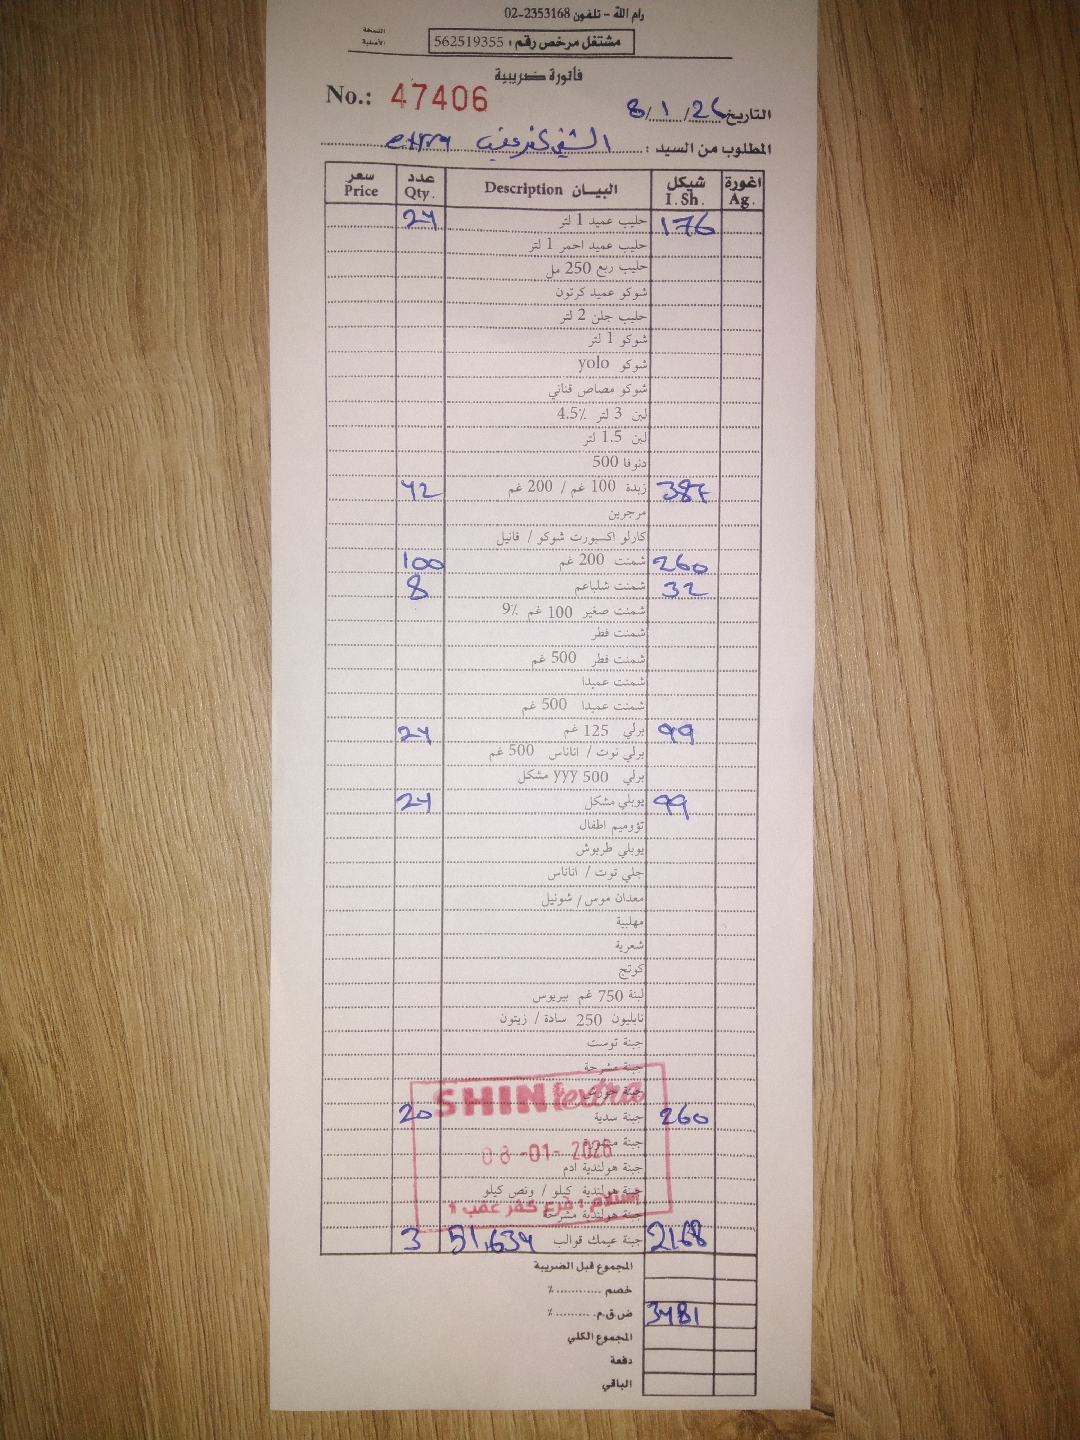 رام الله - تلفون 2353168-02
مشتغل مرخص رقم : 562519355
النسخة
الأصلية
فاتورة ضريبية
No.: 47406
التاريخ 8/1/26
المطلوب من السيد : الشني كفر عقب extra
سعر عدد البيــان شيكل اغورة
Price Qty. Description I. Sh. Ag.
24 حليب عميد 1 لتر 176
حليب عميد احمر 1 لتر
حليب ربع 250 مل
شوكو عميد كرتون
حليب جلن 2 لتر
شوكو 1 لتر
شوكو yolo
شوكو مصاص قناني
لبن 3 لتر 4.5٪
لبن 1.5 لتر
دنوفا 500
42 زبدة 100 غم / 200 غم 387
مرجرين
كارلو اكسبورت شوكو / فانيل
100 شمنت 200 غم 260
8 شمنت شلباعم 32
شمنت صغير 100 غم 9٪
شمنت فطر
شمنت فطر 500 غم
شمنت عميدا
شمنت عميدا 500 غم
24 برلي 125 غم 99
برلي توت / اناناس 500 غم
برلي 500 yyy مشكل
24 يوبلي مشكل 99
تؤوميم اطفال
يوبلي طربوش
جلي توت / اناناس
معدان موس / شونيل
مهلبية
شعرية
كوتج
لبنة 750 غم بيريوس
نابليون 250 سادة / زيتون
جبنة توست
جبنة مشرحة
SHINI extra
20 جبنة سدية 260
08 -01- 2026
جبنة هولندية ادم
جبنة هولندية كيلو / ونص كيلو
استلام : فرع كفر عقب 1
جبنة هولندية مشرحة
3 51,634 جبنة عيمك قوالب 2168
المجموع قبل الضريبة
خصم ............ ٪
ض.ق.م. .......... ٪ 3481
المجموع الكلي
دفعة
الباقي